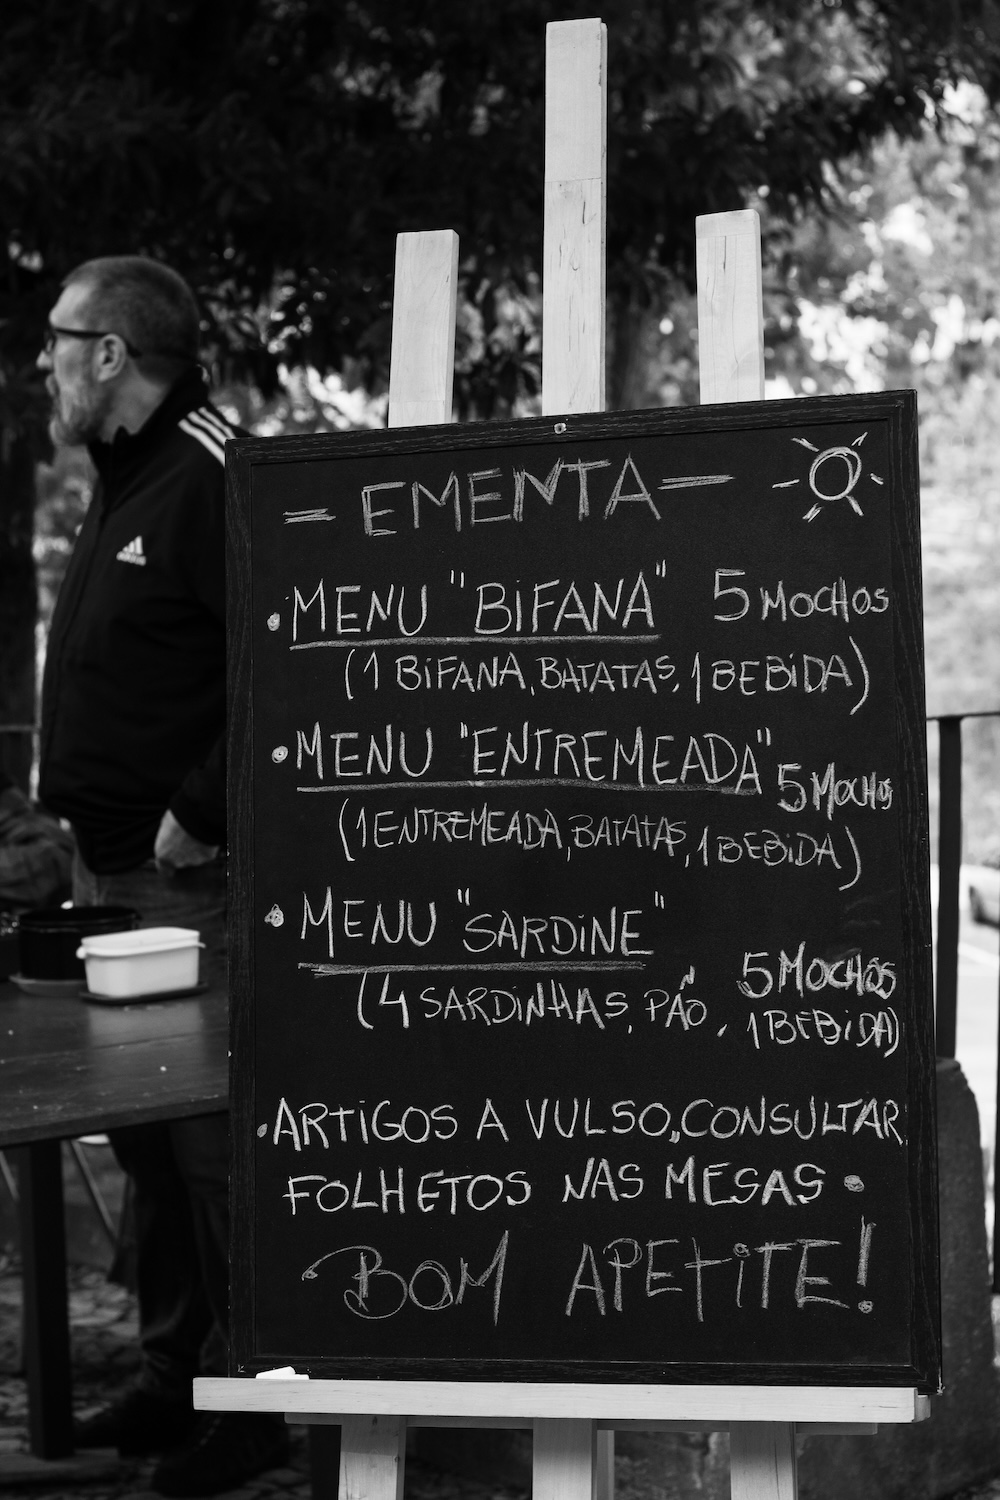 = EMENTA =
• MENU "BIFANA" 5 MOCHOS
(1 BIFANA, BATATAS, 1 BEBIDA)
• MENU "ENTREMEADA" 5 MOCHOS
(1 ENTREMEADA, BATATAS, 1 BEBIDA)
• MENU "SARDINE"
5 MOCHOS
(4 SARDINHAS, PÃO, 1 BEBIDA)
• ARTIGOS A VULSO, CONSULTAR
FOLHETOS NAS MESAS •
BOM APETITE!
adidas